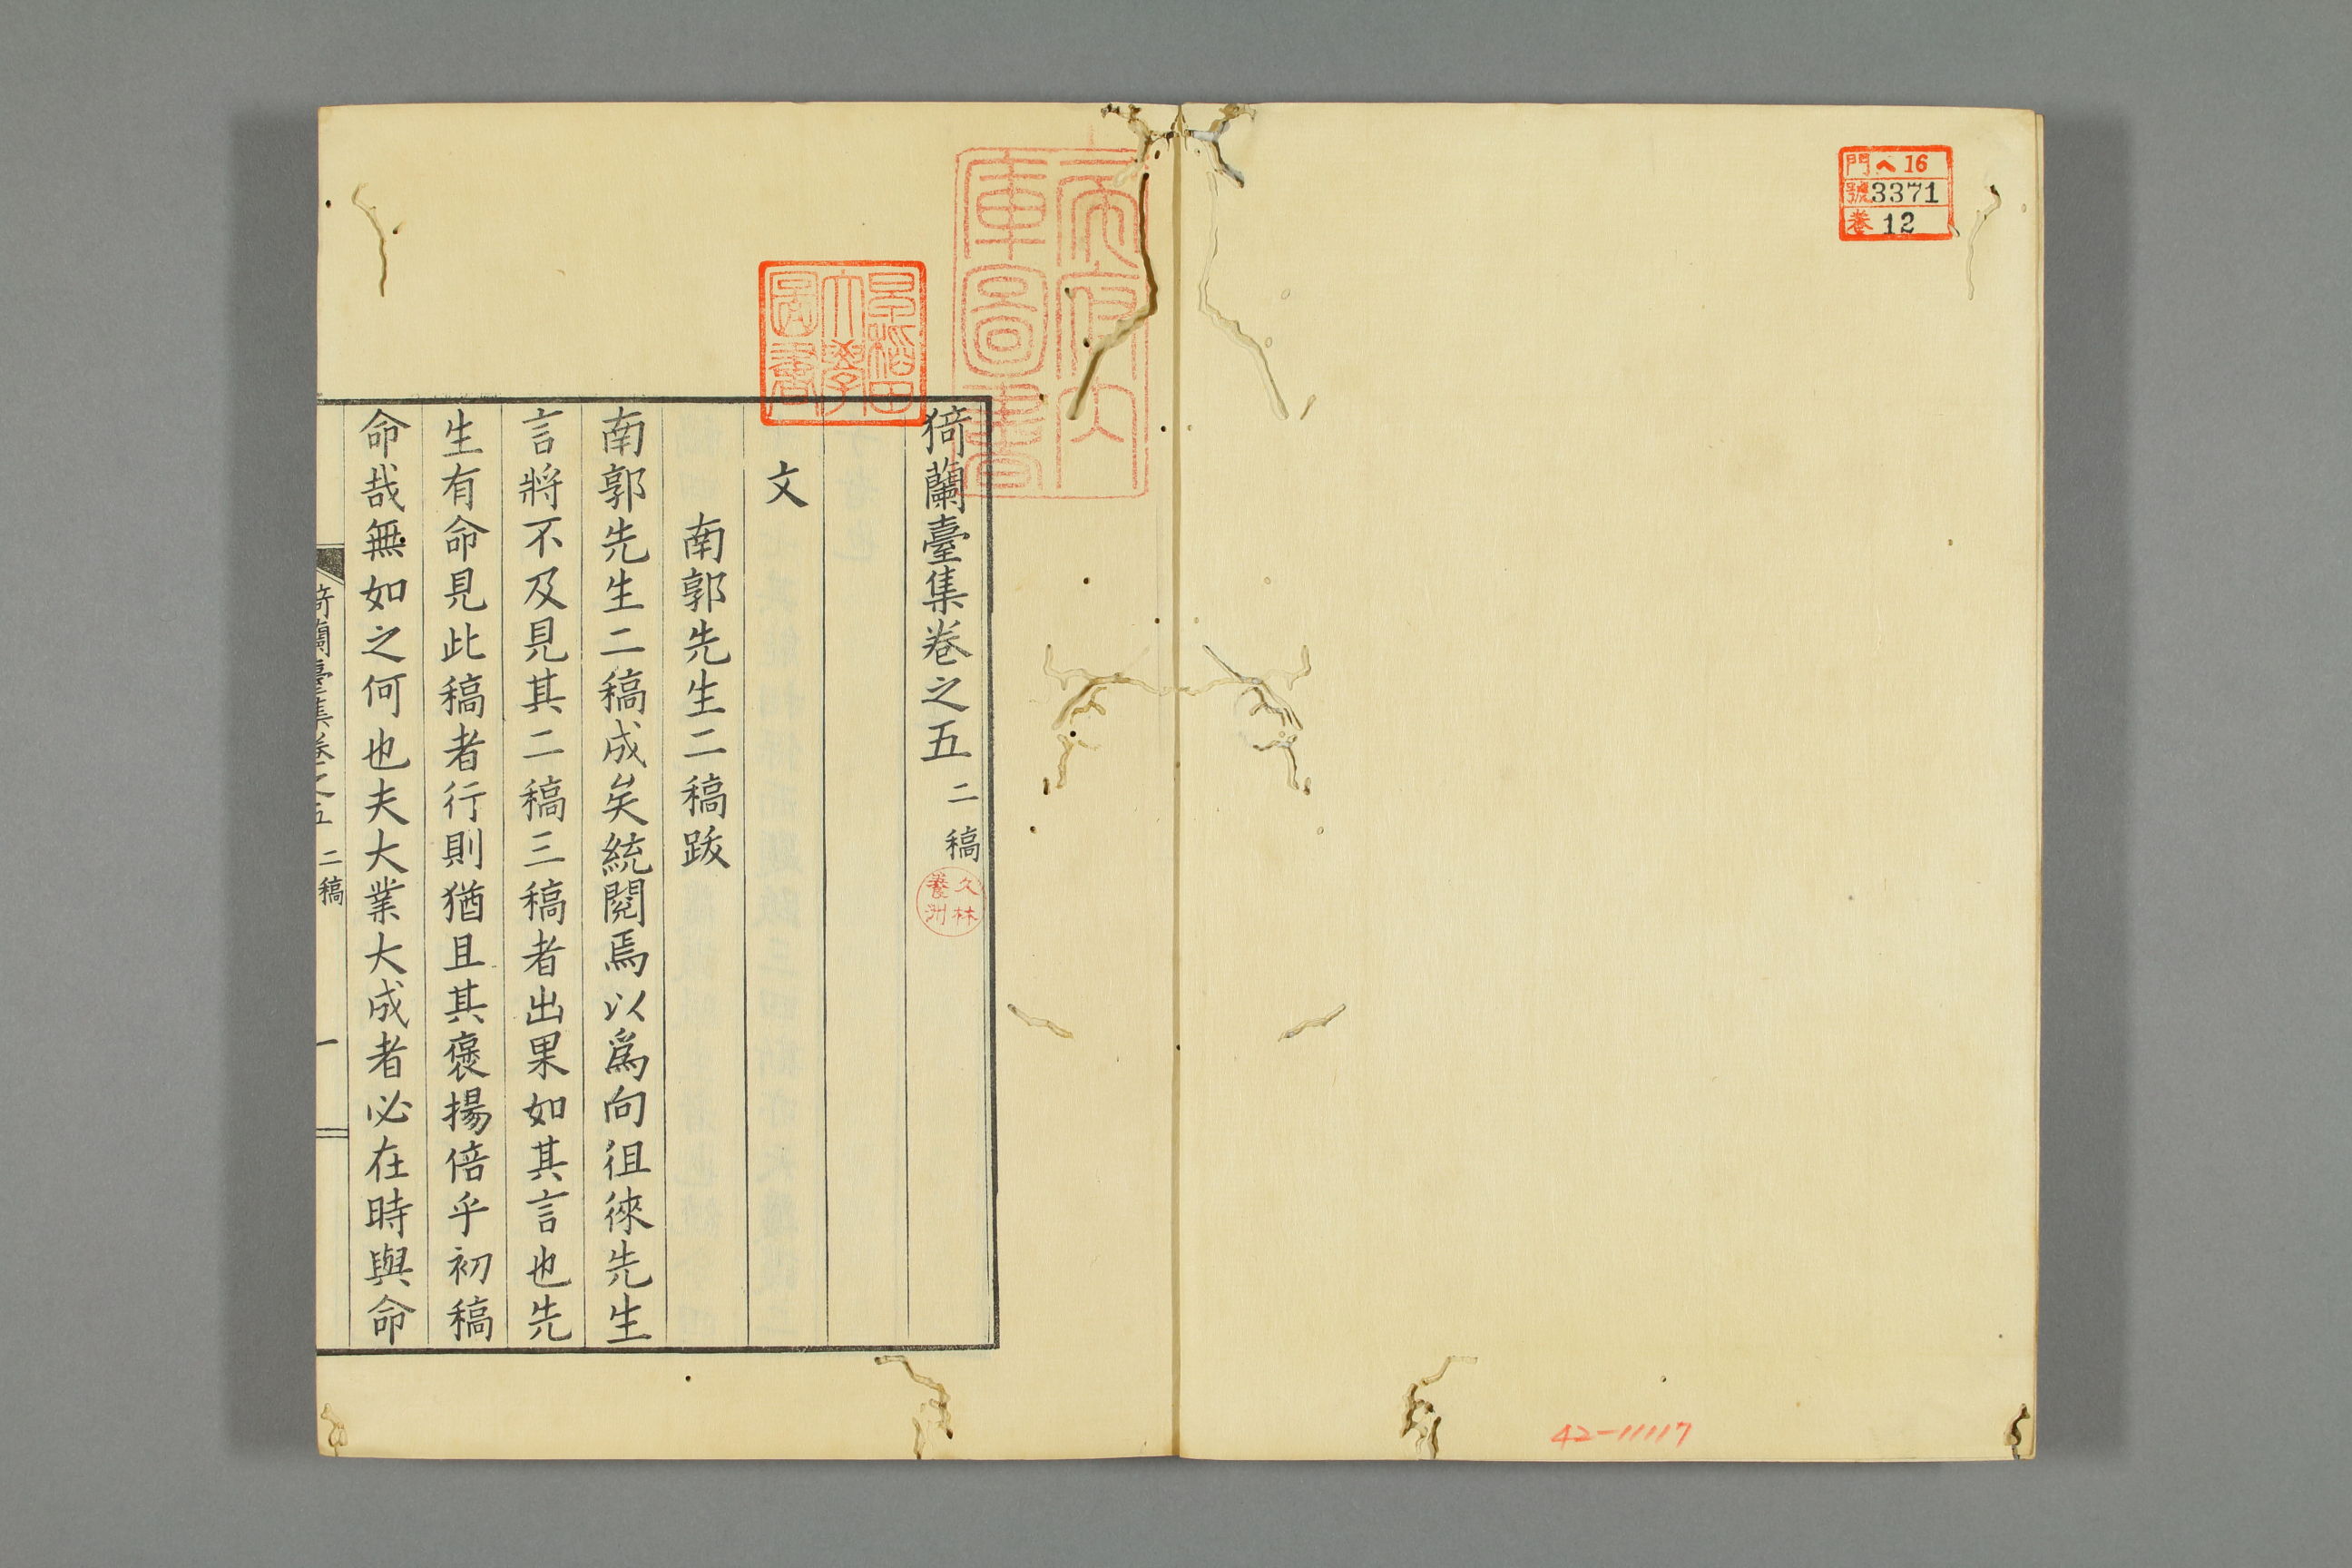 門ヘ16
號3371
巻12
42-11117
猗蘭臺集卷之五 二稿
久林
養洲
早稲田
大學
圖書
文
南郭先生二稿跋
南郭先生二稿成矣統閱焉以爲向徂徠先生
言將不及見其二稿三稿者出果如其言也先
生有命見此稿者行則猶且其褒揚倍乎初稿
命哉無如之何也夫大業大成者必在時與命
猗蘭臺集卷之五 二稿 一